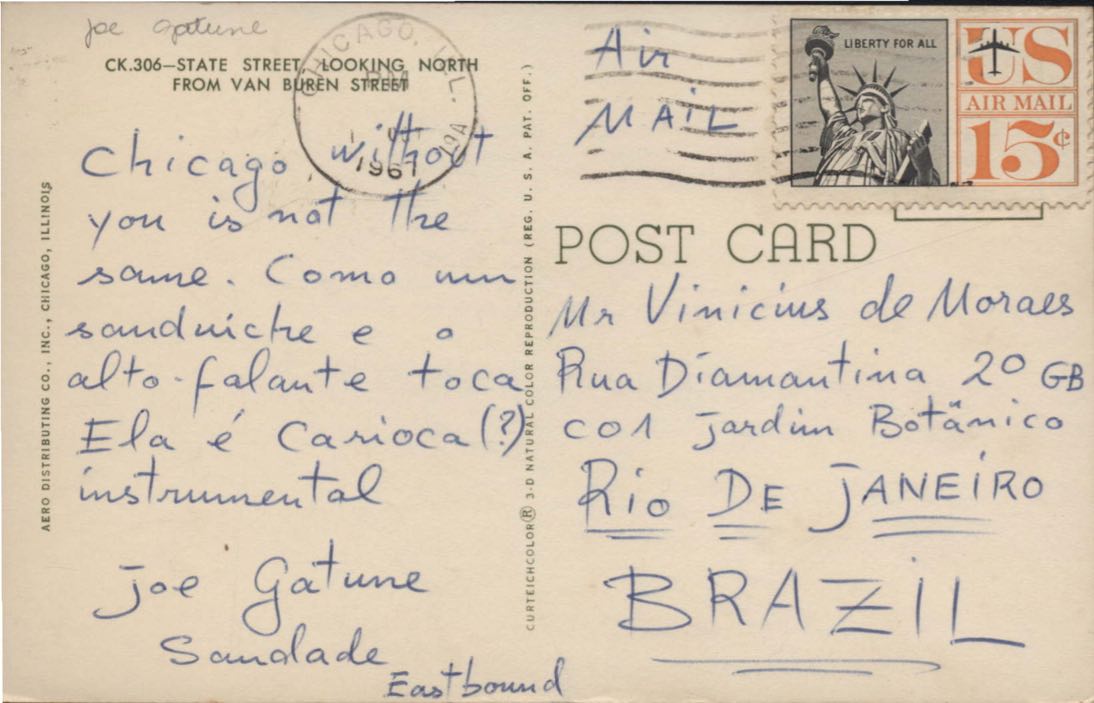 Joe Gatune
CK.306—STATE STREET, LOOKING NORTH
FROM VAN BUREN STREET
CHICAGO, ILL.
PM
1967
Chicago without
you is not the
same. Como um
sanduiche e o
alto-falante toca
Ela é Carioca(?)
instrumental
Joe Gatune
Saudade
Eastbound
AERO DISTRIBUTING CO., INC., CHICAGO, ILLINOIS
CURTEICHCOLOR® 3-D NATURAL COLOR REPRODUCTION (REG. U. S. A. PAT. OFF.)
Air
MAIL
LIBERTY FOR ALL
US
AIR MAIL
15¢
POST CARD
Mr Vinicius de Moraes
Rua Diamantina 20 GB
C01 Jardim Botânico
RIO DE JANEIRO
BRAZIL